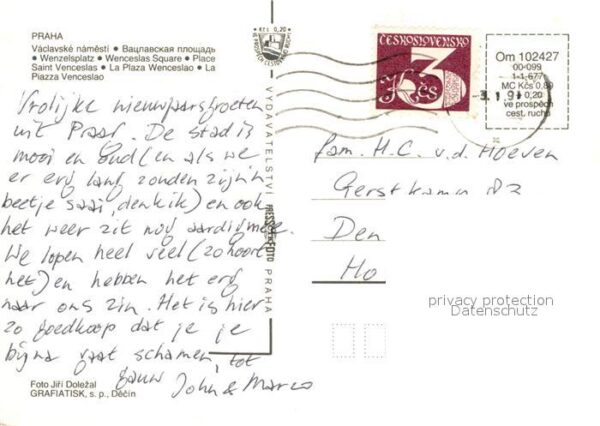 PRAHA
Václavské náměstí ● Вацлавская площадь
● Wenzelsplatz ● Wenceslas Square ● Place
Saint Venceslas ● La Plaza Wenceslao ● La
Piazza Venceslao
Vrolijke nieuwjaarsgroeten
uit Praag. De stad is
mooi en oud (en als we
er erg lang zouden zijn 'n
beetje saai, denk ik) en ook
het weer zit nog aardig mee.
We lopen heel veel (zo hoort
het) en hebben het erg
naar ons zin. Het is hier
zo goedkoop dat je je
bijna gaat schamen, tot
gauw John & Marco
Foto Jiří Doležal
GRAFIATISK, s. p., Děčín
Kčs 0,20
VE PROSPĚCH CESTOVNÍHO RUCHU
VYDAVATELSTVÍ PRESSFOTO PRAHA
ČESKOSLOVENSKO
3 Kčs
3. 1. 91
Om 102427
00-099
1-1-677
MC Kčs 0,80
0,20
ve prospěch
cest. ruchu
fam. H.C. v.d. Hoeven
Gerstkamp 82
Den
Ho
privacy protection
Datenschutz